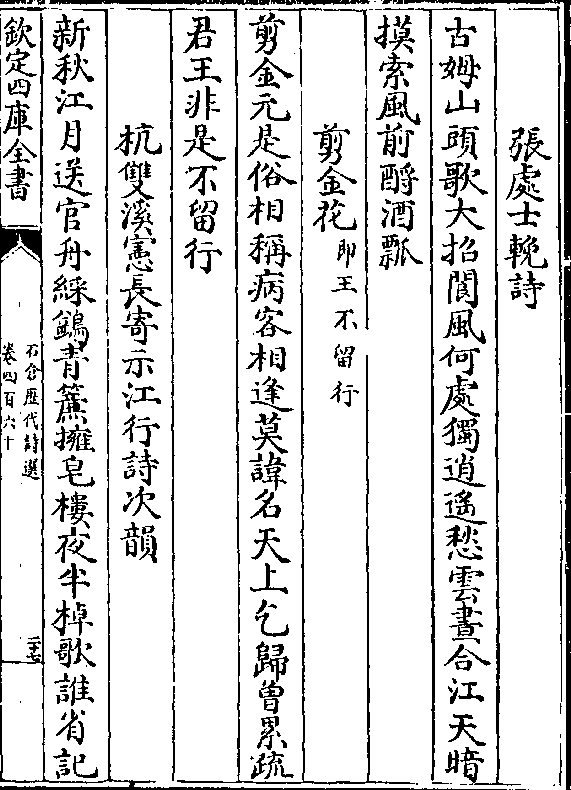 張處士輓詩
古姆山頭歌大招閬風何處獨逍遙愁雲晝合江天暗
摸索風前酹酒瓢
剪金花即王不留行
剪金元是俗相稱病客相逢莫諱名天上乞歸曾累疏
君王非是不留行
杭雙溪憲長寄示江行詩次韻
新秋江月送官舟綵鷁青簾擁皂樓夜半棹歌誰省記
欽定四庫全書
石倉歷代詩選
卷四百六十
二十七